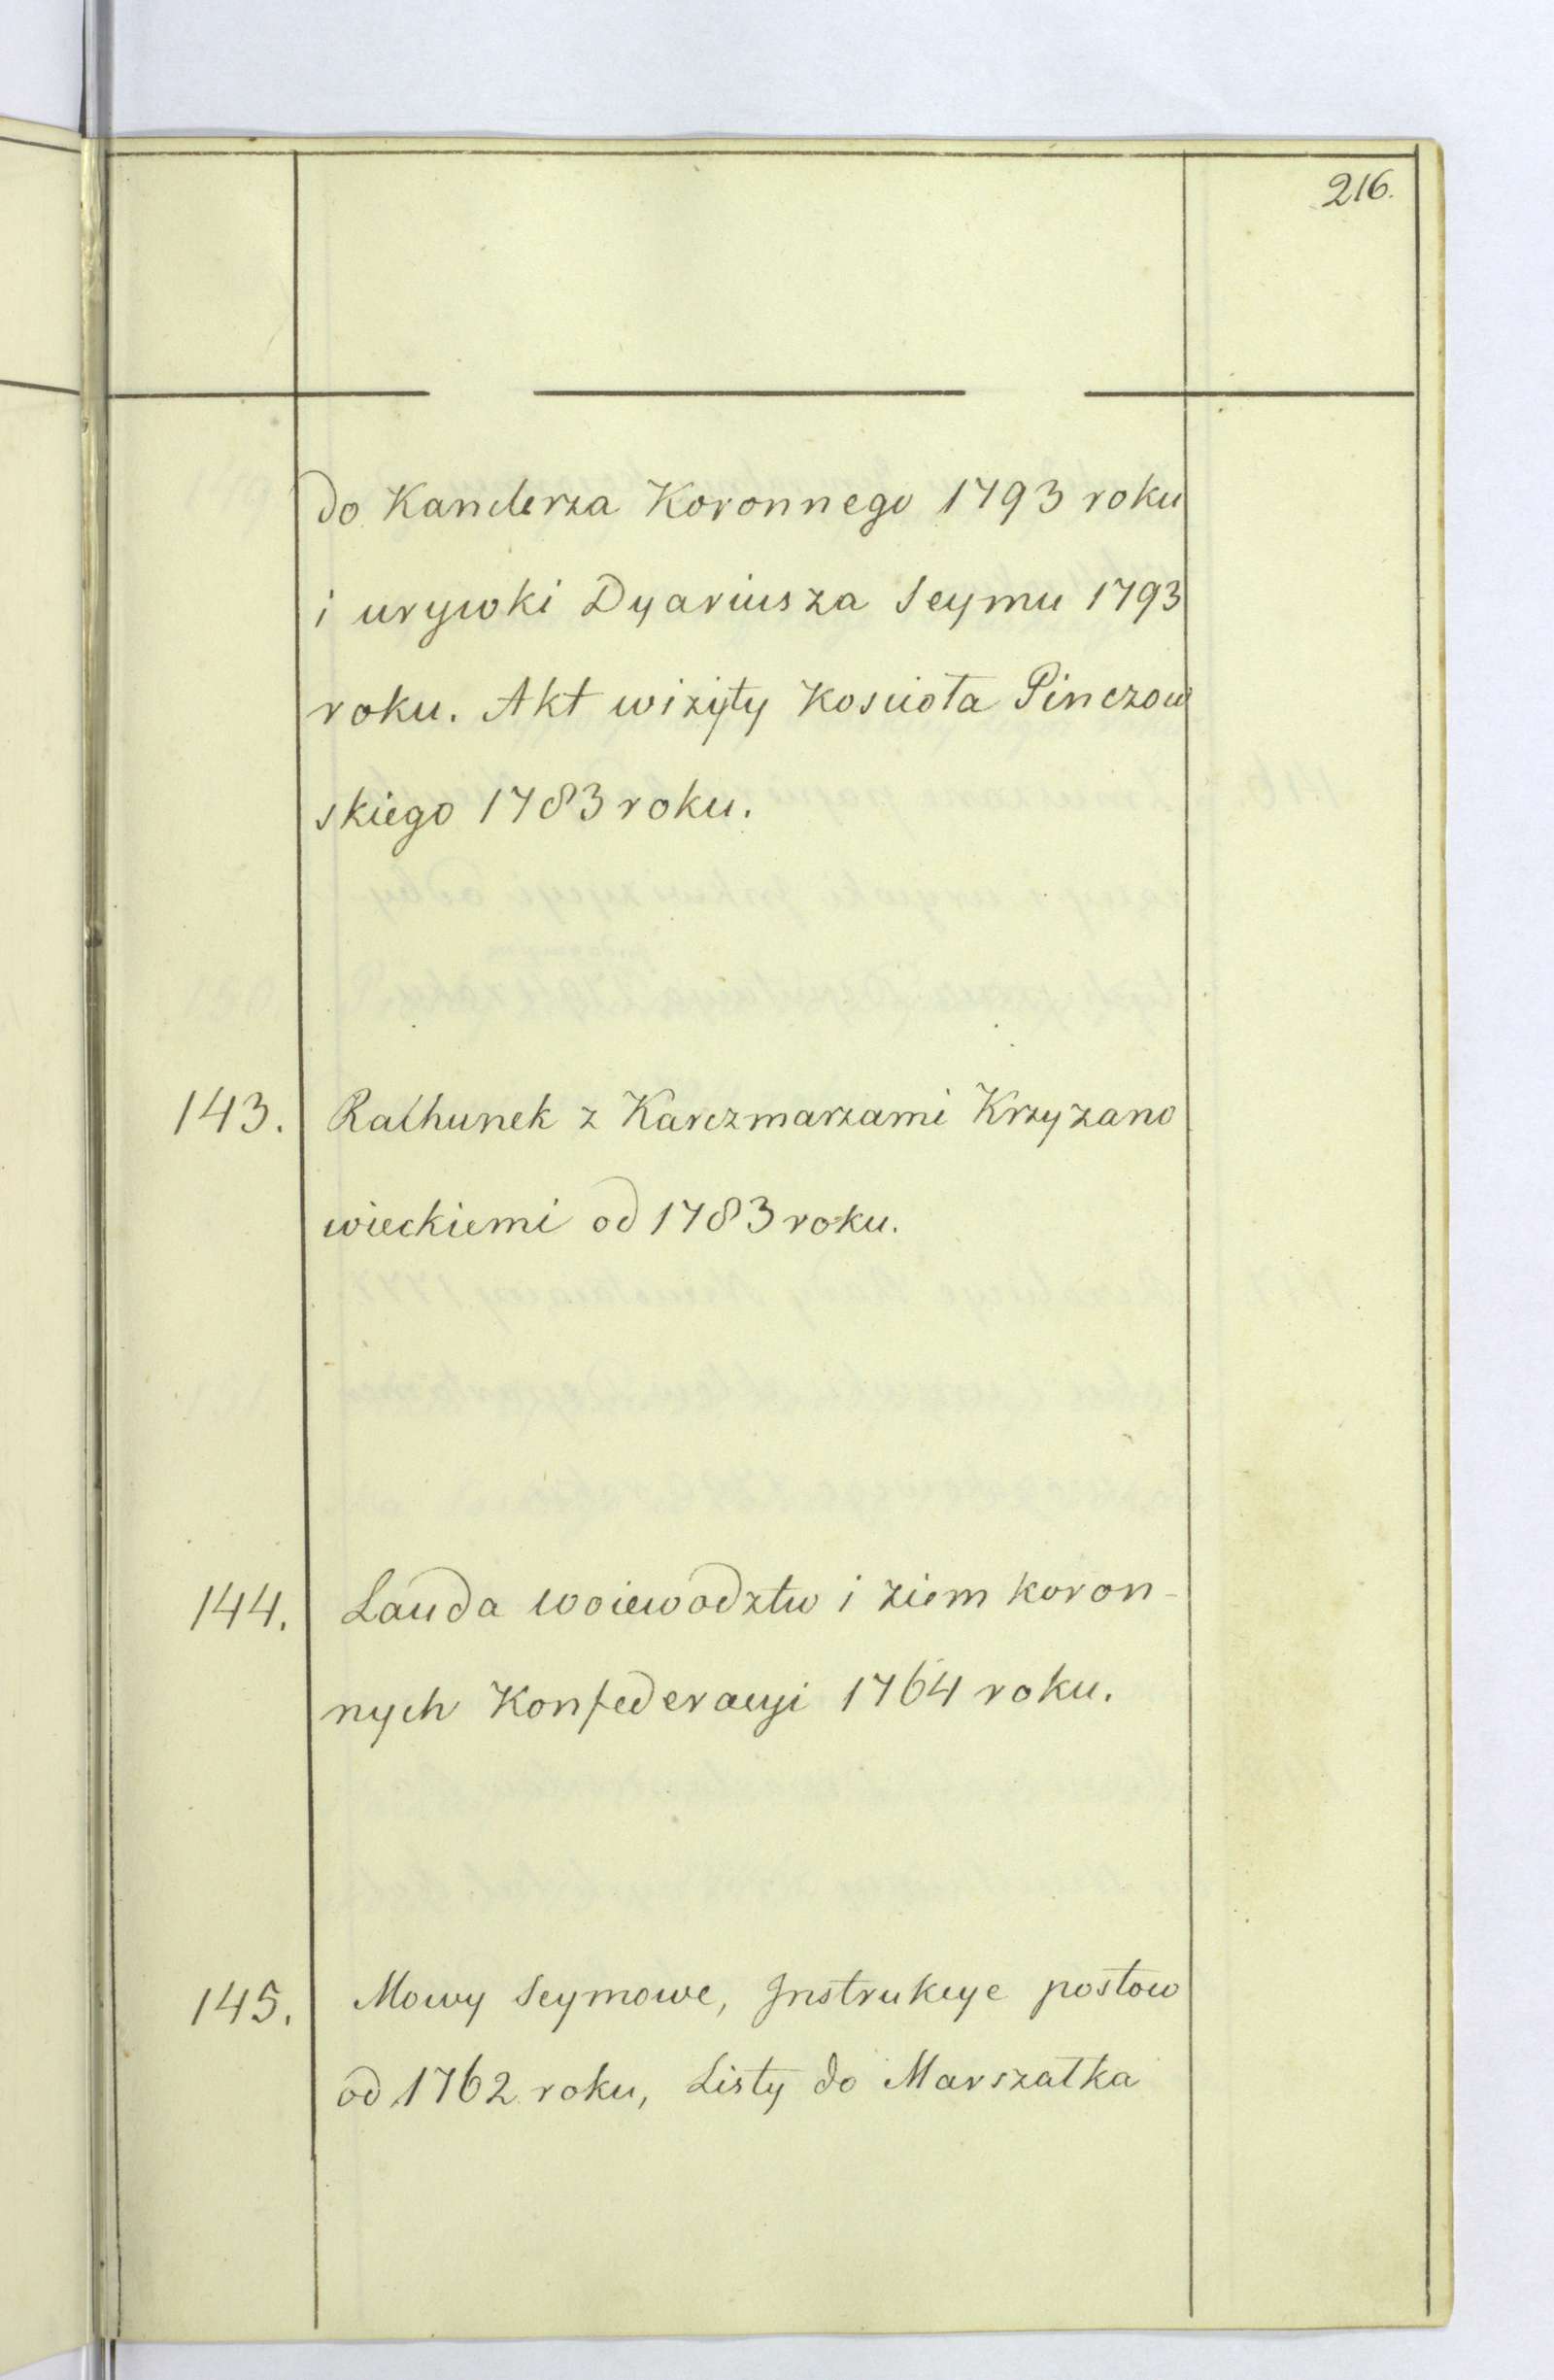 216.
do Kanclerza Koronnego 1793 roku
i urywki Dyariusza Seymu 1793
roku. Akt wizyty Kościoła Pinczow
skiego 1783 roku.
143. Rachunek z Karczmarzami Krzyzano
wieckiemi od 1783 roku.
144. Lauda woiewodztw i ziem koron-
nych Konfederacyi 1764 roku.
145. Mowy Seymowe, Instrukcye posłow
od 1762 roku, Listy do Marszałka